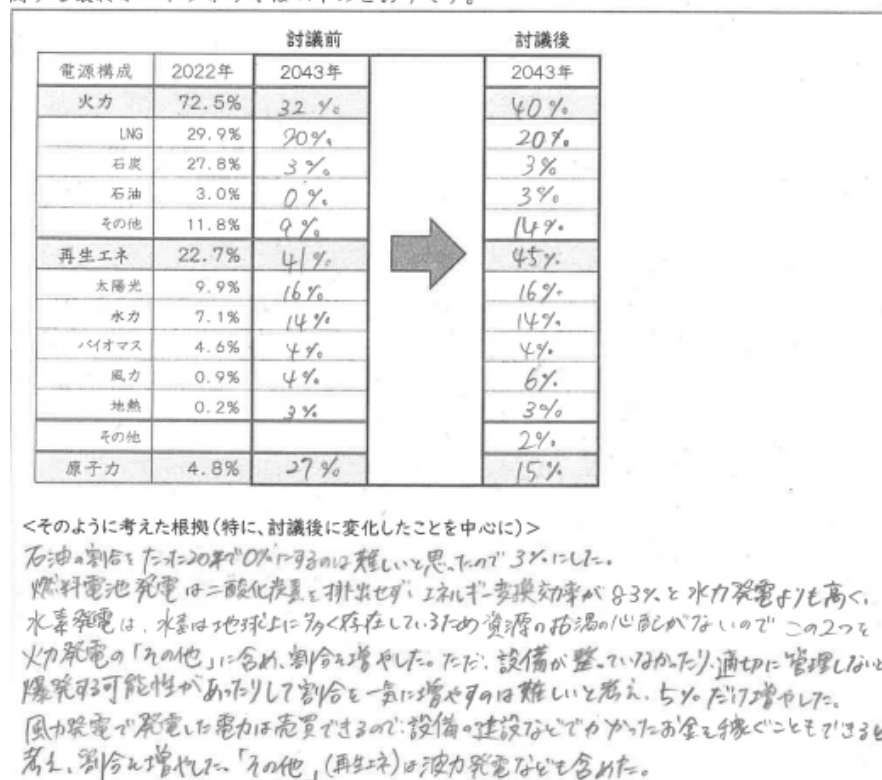 討議前 討議後
電源構成 2022年 2043年 2043年
火力 72.5% 32% 40%
LNG 29.9% 20% 20%
石炭 27.8% 3% 3%
石油 3.0% 0% 3%
その他 11.8% 9% 14%
再生エネ 22.7% 41% 45%
太陽光 9.9% 16% 16%
水力 7.1% 14% 14%
バイオマス 4.6% 4% 4%
風力 0.9% 4% 6%
地熱 0.2% 3% 3%
その他 2%
原子力 4.8% 27% 15%
<そのように考えた根拠(特に、討議後に変化したことを中心に)>
石油の割合をたった20年で0%にするのは難しいと思ったので3%にした。
燃料電池発電は二酸化炭素を排出せず、エネルギー変換効率が83%と水力発電よりも高く、
水素発電は、水素は地球上に多く存在しているため資源の枯渇の心配がないのでこの2つを
火力発電の「その他」に含め、割合を増やした。ただ、設備が整っていなかったり、適切に管理しないと
爆発する可能性があったりして割合を一気に増やすのは難しいと考え、5%だけ増やした。
風力発電で発電した電力は売買できるので、設備の建設などでかかったお金を稼ぐこともできると
考え、割合を増やした。「その他」(再生エネ)は波力発電なども含めた。